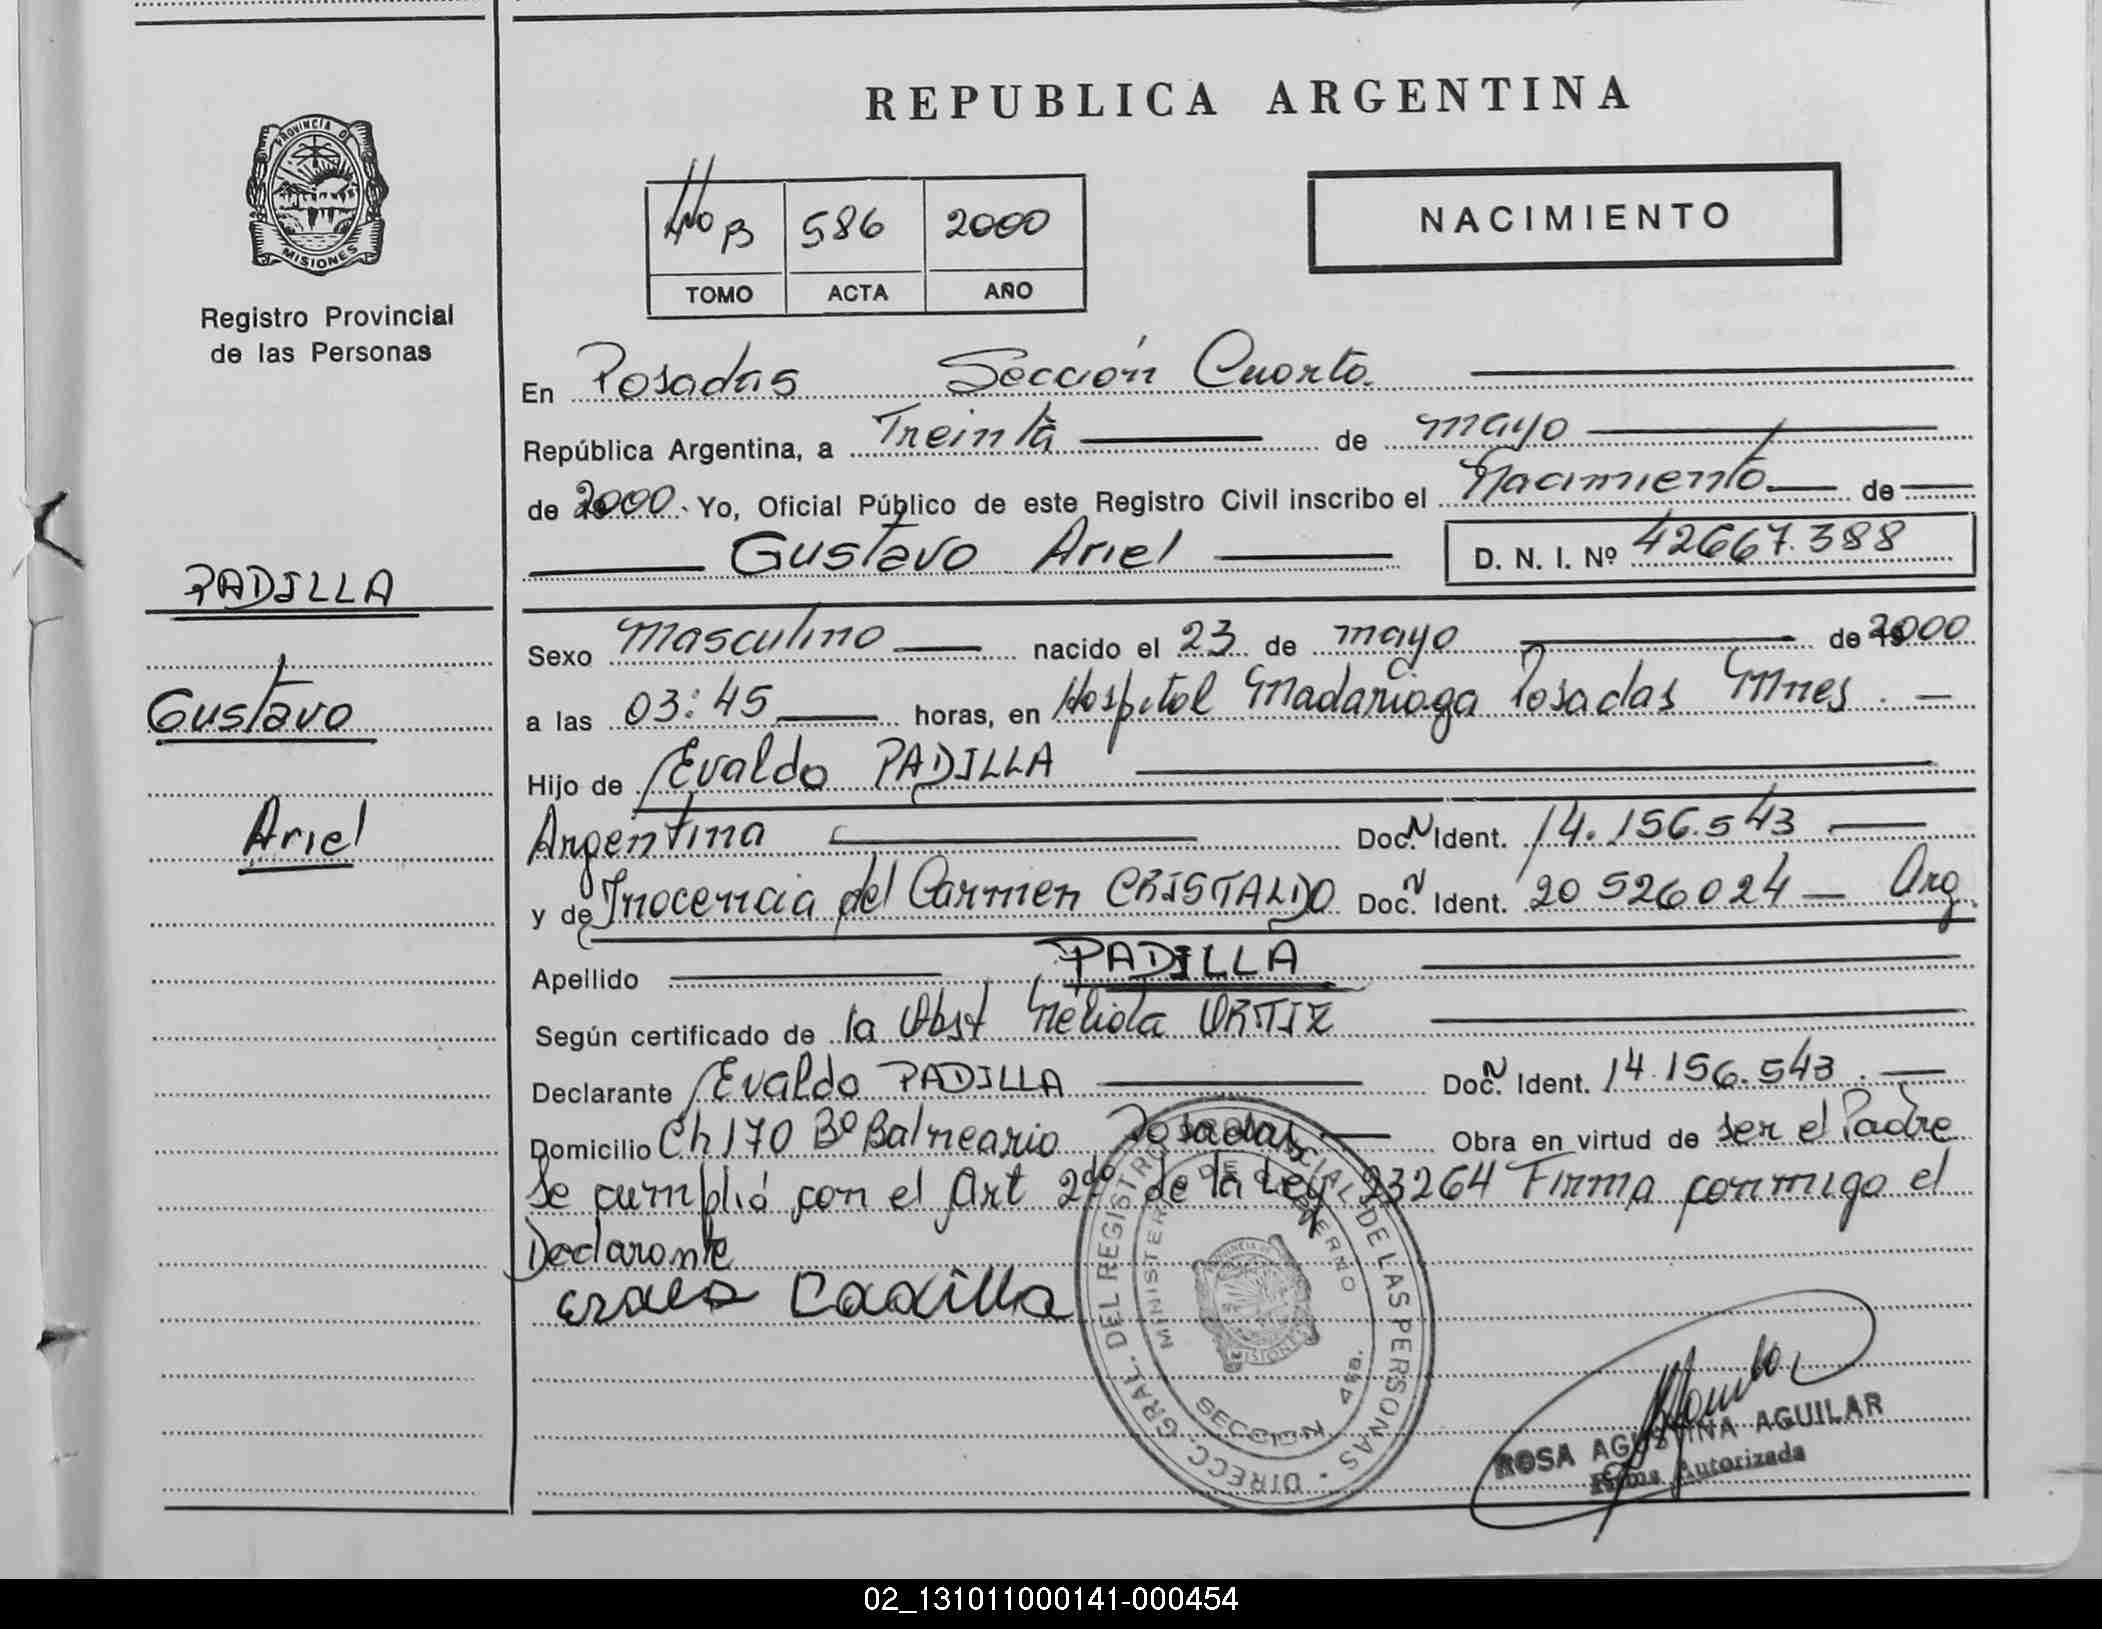 REPUBLICA ARGENTINA
PROVINCIA DE
MISIONES
Registro Provincial
de las Personas
B 586 2000
TOMO ACTA AÑO
NACIMIENTO
En Posadas Sección Cuarta
República Argentina, a Treinta de mayo
de 2000. Yo, Oficial Público de este Registro Civil inscribo el Nacimiento de
Gustavo Ariel D. N. I. Nº 42667.388
PADILLA
Gustavo
Ariel
Sexo Masculino nacido el 23 de mayo de 2000
a las 03:45 horas, en Hospital Madariaga Posadas Mnes.
Hijo de Evaldo PADILLA
Argentina Doc. N Ident. 14.156.543
y de Inocencia del Carmen CRISTALDO Doc. N Ident. 20 526024 Arg.
Apellido PADILLA
Según certificado de la Obst ORTIZ
Declarante Evaldo PADILLA Doc. N Ident. 14.156.543.
Domicilio Ch 170 Bº Balneario Posadas Obra en virtud de ser el Padre
Se cumplió con el Art 2do de la Ley 23264 Firma conmigo el
Declarante
Padilla
DIRECC. GRAL. DEL REGISTRO PROVINCIAL DE LAS PERSONAS
MINISTERIO DE GOBIERNO
SECCION 4ta.
ROSA AGUSTINA AGUILAR
Firma Autorizada
02_131011000141-000454